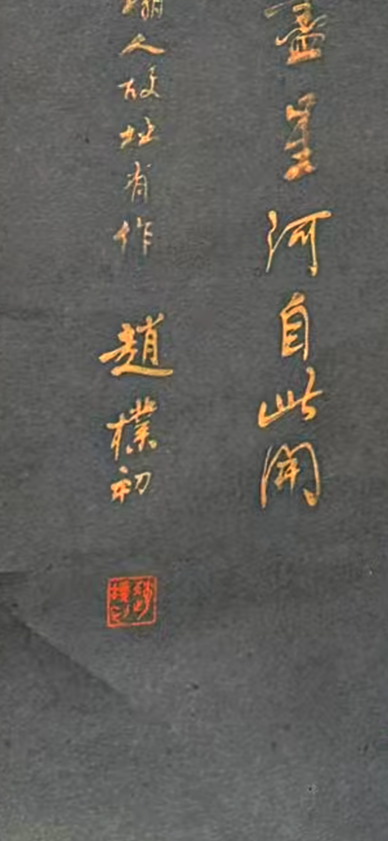 盡星河自此開
人故址有作 趙樸初